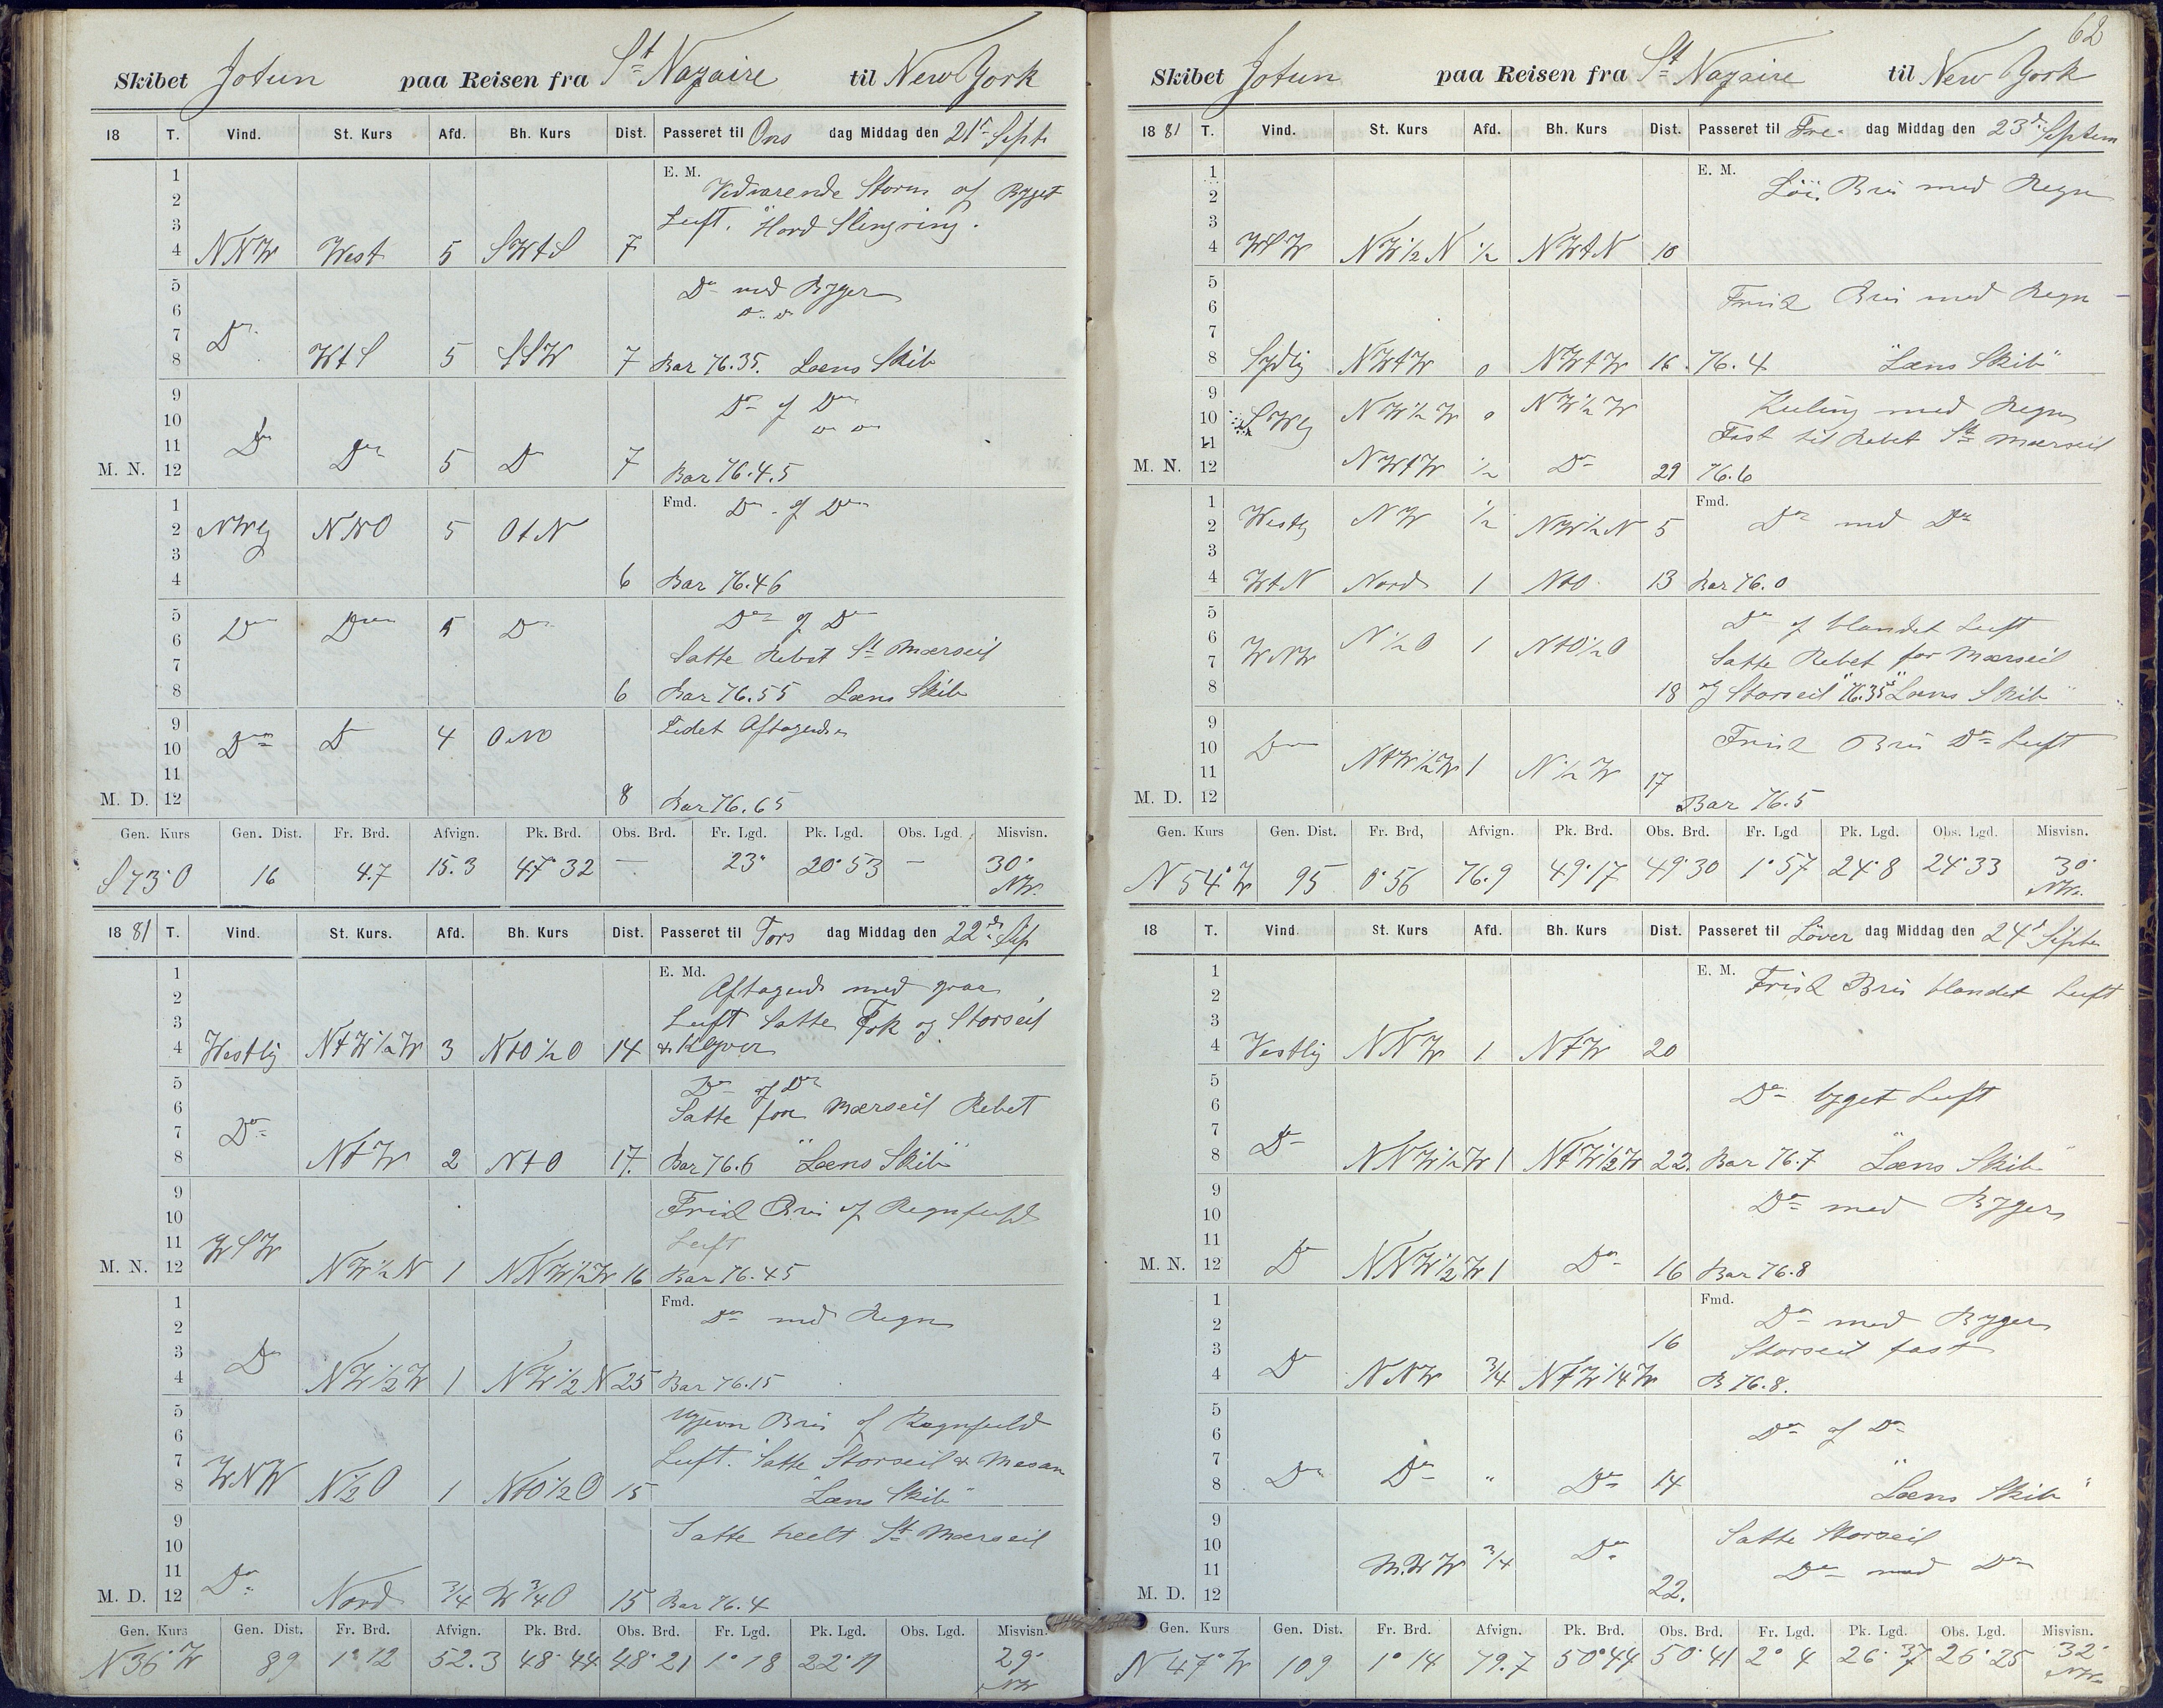 Skibet Jotun paa Reisen fra St Nazaire til New York
18 T. Vind. St. Kurs Afd. Bh. Kurs Dist. Passeret til Ons dag Middag den 21de Septr
E. M.
1
2 Vedvarende Storm og Byget
3 Luft. Hord Slingring.
4 NNW West 5 SWtS 7
5 Do med Byger
6
7 Do
8 WtS 5 SSW 7 Bar 76.35. Læns Skib
9 Do og Do
10
11 Do Do 5 Do 7
M. N. 12 Bar 76.4.5
1 Fmd. Do og Do
2 NWlg NNO 5 OtN
3
4 6 Bar 76.46
5 Do og Do
6 Do Do 5 Do Satte Rebet St Mærseil
7
8 6 Bar 76.55 Læns Skib
9 Lidet Aftagende
10 Do Do 4 ONO
11
M. D. 12 8 Bar 76.65
Gen. Kurs Gen. Dist. Fr. Brd. Afvign. Pk. Brd. Obs. Brd. Fr. Lgd. Pk. Lgd. Obs. Lgd. Misvisn.
S 73° O 16 4.7 15.3 47° 32 — 23' 20° 53 — 30° NW.
18 81 T. Vind. St. Kurs. Afd. Bh. Kurs Dist. Passeret til Tors dag Middag den 22de Sep
1 E. Md.
2 Aftagende med graa
3 Luft Satte Fok og Storseil
4 Westlig NtW½W 3 NtO½O 14 & Klyver
5 Do og Do
6 Satte for Mærseil Rebet
7 Do
8 NtW 2 NtO 17. Bar 76.6 "Læns Skib"
9 Frisk Bris og Regnfuld
10
11 WSW Luft
M. N. 12 NW½N 1 NNW½W 16 Bar 76.45
1 Fmd.
2 Do med Regn
3 Do
4 NW½W 1 NW½N 25 Bar 76.15
5 Ujevn Bris og Regnfuld
6
7 Luft. Satte Storseil & Mesan
8 WNW N½O 1 NtO½O 15 "Læns Skib"
9 Satte heelt St Mærseil
10
11 Do
M. D. 12 Nord ¾ N¾O 15 Bar 76.4
Gen. Kurs Gen. Dist. Fr. Brd. Afvign. Pk. Brd. Obs. Brd. Fr. Lgd. Pk. Lgd. Obs. Lgd. Misvisn.
N 36° W 89 1° 12 52.3 48° 44 48° 21 1° 18 22° 11 29° NW
62
Skibet Jotun paa Reisen fra St Nazaire til New York
18 81 T. Vind. St. Kurs Afd. Bh. Kurs Dist. Passeret til Fre dag Middag den 23de Septem
1 E. M.
2 Löi Bris med Regn
3
4 WSW NW½N ½ NWtN 10
5
6 Frisk Bris med Regn
7
8 Sydlig NWtW 0 NWtW 16. 76.4 "Læns Skib"
9 Kuling med Regn
10 SWlg NW½W 0 NW½W
11 Fast til Rebet St Mærseil
M. N. 12 NWtW ½ Do 29 76.6
1 Fmd.
2 Westlg NW ½ NW½N 5 Do med Do
3
4 WtN Nord 1 NtO 13 Bar 76.0
5 Do og blandet Luft
6 N½O 1 NtO½O
7 WNW Satte Rebet for Mærseil
8 18 og Storseil 76.35 "Læns Skib"
9 Frisk Bris Do Luft
10 Do
11 NtW½W 1 N½W 17
M. D. 12 Bar 76.5
Gen. Kurs Gen. Dist. Fr. Brd, Afvign. Pk. Brd. Obs. Brd. Fr. Lgd Pk. Lgd. Obs. Lgd. Misvisn.
N 54° W 95 0° 56 76.9 49° 17 49° 30 1° 57 24° 8 24° 33 30° NW.
18 T. Vind. St. Kurs Afd. Bh. Kurs Dist. Passeret til Löver dag Middag den 24de Septe
1 E. M. Frisk Bris blandet Luft
2
3
4 Vestlig NNW 1 NtW 20
5 Do byget Luft
6
7
8 Do NNW½W 1 NtW½W 22. Bar 76.7 "Læns Skib"
9 Do med Byger
10
11
M. N. 12 Do NNW½W 1 Do 16 Bar 76.8
1 Fmd. Do med Byger
2
3 16 Storseil fast
4 Do NNW ¾ NtW¼W B 76.8.
5 Do og Do
6
7
8 Do Do " Do 14 "Læns Skib"
9 Satte Storseil
10
11 NNW ¾ Do Do med Do
M. D. 12 22.
Gen. Kurs Gen. Dist. Fr. Brd. Afvign. Pk. Brd. Obs. Brd. Fr. Lgd. Pk. Lgd. Obs. Lgd. Misvisn.
N 47° W 109 1° 14 79.7 50° 44 50° 41 2° 4 26° 37 26° 25 32° NW